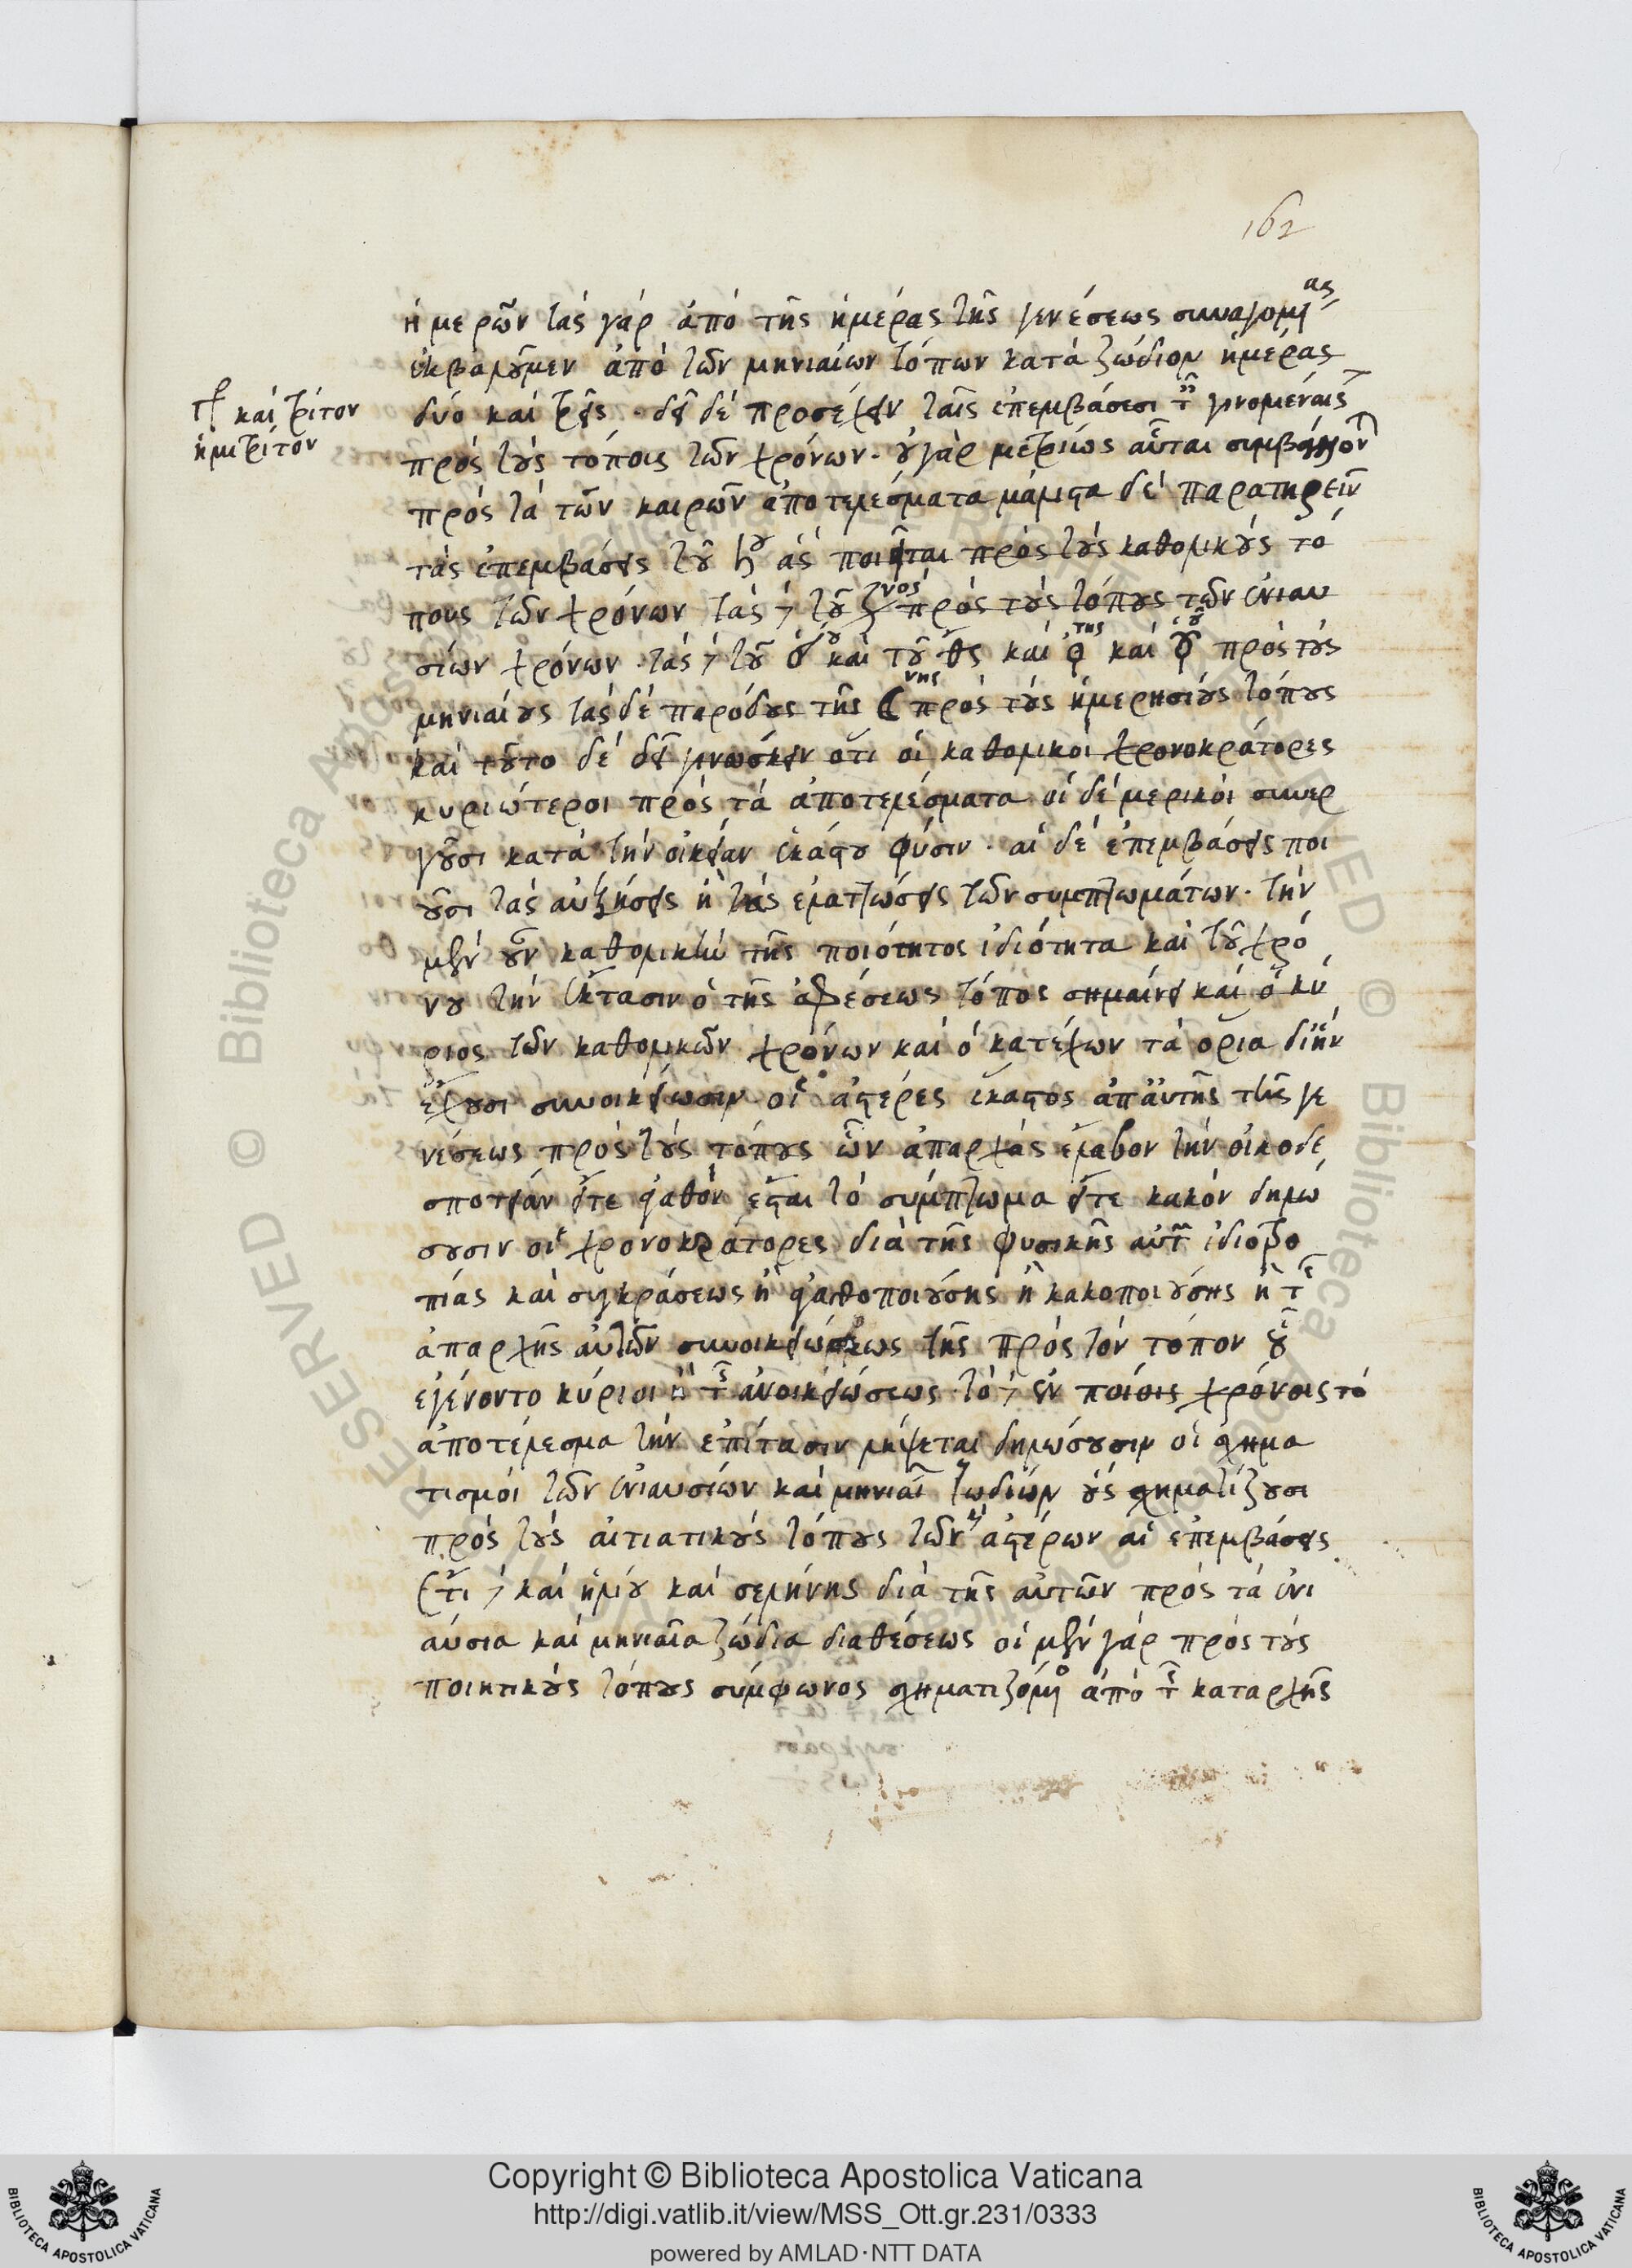 162
ἡμερῶν τὰς γὰρ ἀπὸ τῆς ἡμέρας τῆς γενέσεως συναγομένας
ἐκβαλοῦμεν ἀπὸ τῶν μηνιαίων τόπων κατὰ ζώδιον ἡμέρας
δύο καὶ τρεῖς · δεῖ δὲ προσέχειν ταῖς ἐπεμβάσεσι ταῖς γινομέναις
καὶ τρίτον
ἡμιτρίτον
πρὸς τοὺς τόποις τῶν χρόνων · οὐ γὰρ μετρίως αὗται συμβάλλονται
πρὸς τὰ τῶν καιρῶν ἀποτελέσματα μάλιστα δὲ παρατηρεῖν
τὰς ἐπεμβάσεις τοῦ ♄ου ἃς ποιεῖται πρὸς τοὺς καθολικοὺς τό
πους τῶν χρόνων τὰς δὲ τοῦ ♃νὸς πρὸς τοὺς τόπους τῶν ἐνιαυ
σίων χρόνων · τὰς δὲ τοῦ ☉ου καὶ τοῦ ♂ς καὶ ♀της καὶ ☿οῦ πρὸς τοὺς
μηνιαίους τὰς δὲ παρόδους τῆς ☾νης πρὸς τοὺς ἡμερησίους τόπους
καὶ τοῦτο δὲ δεῖ γινώσκειν ὅτι οἱ καθολικοὶ χρονοκράτορες
κυριώτεροι πρὸς τὰ ἀποτελέσματα οἱ δὲ μερικοὶ συνερ
γοῦσι κατὰ τὴν οἰκείαν ἑκάστου φύσιν · αἱ δὲ ἐπεμβάσεις ποι
οῦσι τὰς αὐξήσεις ἢ τὰς ἐλαττώσεις τῶν συμπτωμάτων · τὴν
μὲν οὖν καθολικὴν τῆς ποιότητος ἰδιότητα καὶ τοῦ χρό
νου τὴν ἔκτασιν ὁ τῆς ἀφέσεως τόπος σημαίνει καὶ ὁ κύ
ριος τῶν καθολικῶν χρόνων καὶ ὁ κατέχων τὰ ὅρια δι ἣν
ἔχουσι συνοικείωσιν οἱ ἀστέρες ἕκαστος ἀπ αὐτῆς τῆς γε
νέσεως πρὸς τοὺς τόπους ὧν ἀπαρχὰς ἔλαβον τὴν οἰκοδε
σποτείαν εἴτε ἀγαθὸν ἔσται τὸ σύμπτωμα εἴτε κακὸν δηλώ
σουσιν οἱ χρονοκράτορες διὰ τῆς φυσικῆς αὐτῶν ἰδιοτρο
πίας καὶ συγκράσεως ἢ ἀγαθοποιούσης ἢ κακοποιούσης ἢ τῆς
ἀπαρχῆς αὐτῶν συνοικειώσεως τῆς πρὸς τὸν τόπον οὗ
ἐγένοντο κύριοι ἢ τῆς ἀνοικειώσεως · τὸ δὲ ἐν ποίοις χρόνοις τὸ
ἀποτέλεσμα τὴν ἐπίτασιν λήψεται δηλώσουσιν οἱ σχημα
τισμοὶ τῶν ἐνιαυσίων καὶ μηνιαίων ζωδίων οὓς σχηματίζουσι
πρὸς τοὺς αἰτιατικοὺς τόπους τῶν ἀστέρων αἱ ἐπεμβάσεις
ἔτι δὲ καὶ ἡλίου καὶ σελήνης διὰ τῆς αὐτῶν πρὸς τὰ ἐνι
αύσια καὶ μηνιαῖα ζώδια διαθέσεως οἱ μὲν γὰρ πρὸς τοὺς
ποιητικοὺς τόπους σύμφωνος σχηματιζόμενο ἀπὸ τῆς καταρχῆς
RESERVED © Biblioteca Apostolica Vaticana
Copyright © Biblioteca Apostolica Vaticana
http://digi.vatlib.it/view/MSS_Ott.gr.231/0333
powered by AMLAD·NTT DATA
BIBLIOTECA APOSTOLICA VATICANA
BIBLIOTECA APOSTOLICA VATICANA